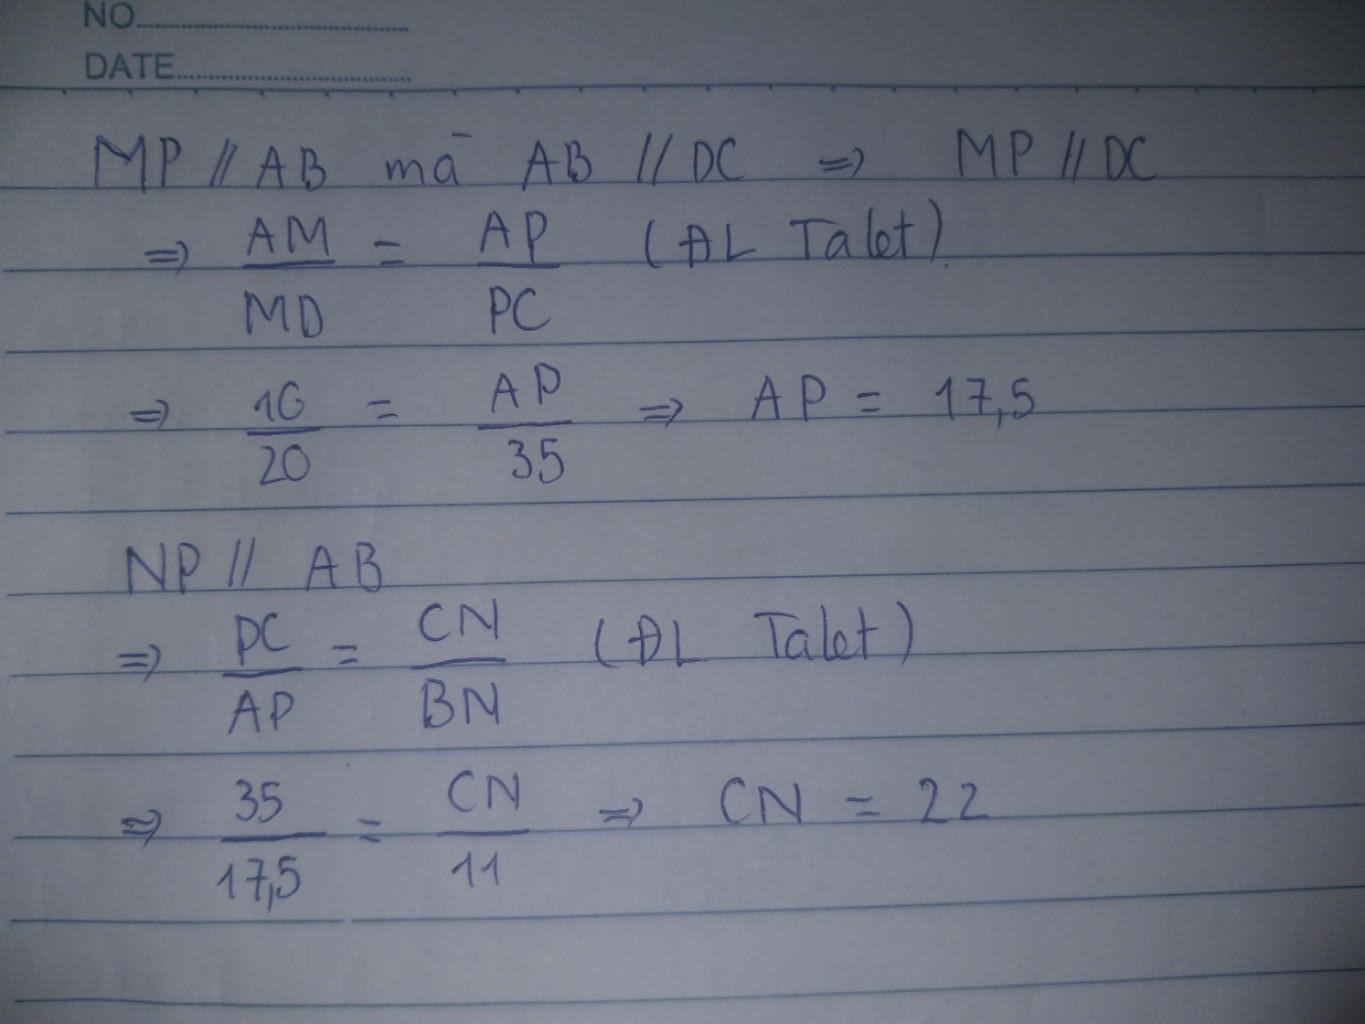 NO
DATE
MP // AB mà AB // DC => MP // DC
=> AM/MD = AP/PC (ĐL Talet)
=> 10/20 = AP/35 => AP = 17,5
NP // AB
=> PC/AP = CN/BN (ĐL Talet)
=> 35/17,5 = CN/11 => CN = 22